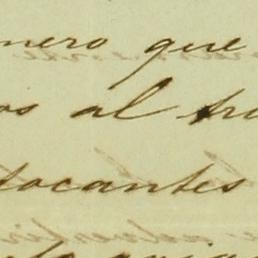 nero que
os al tri
tocantes